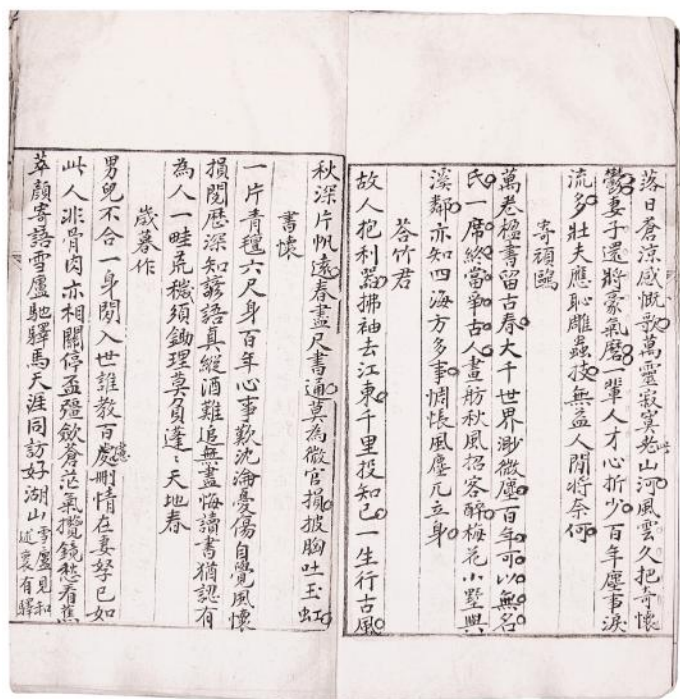 落日蒼涼感慨歌萬靈寂寞老山河風雲久把奇懷
鬱妻子還將豪氣磨一輩人才心折少百年塵事淚
流多壯夫應恥雕蟲技無益人間將奈何
寄頑鷗
萬卷楹書留古春大千世界渺微塵百年可以無名
氏一席終當爭古人畫舫秋風招客醉梅花小墅與
溪鄰亦知四海方多事惆悵風塵兀立身
答竹君
故人抱利器拂袖去江東千里投知己一生行古風
秋深片帆遠春盡尺書通莫為微官損披胸吐玉虹
書懷
一片青氊六尺身百年心事歎沈淪憂傷自覺風懷
損閱歷深知諺語真縱酒難追無盡悔讀書猶認有
為人一畦荒穢須鋤理莫負蓬〻天地春
歲暮作
男兒不合一身閒入世誰教百慮刪情在妻孥已如
此人非骨肉亦相關停盃彊斂蒼茫氣攬鏡愁看蕉
萃顏寄語雪廬馳驛馬天涯同訪好湖山
雪廬見和
述褱有驛